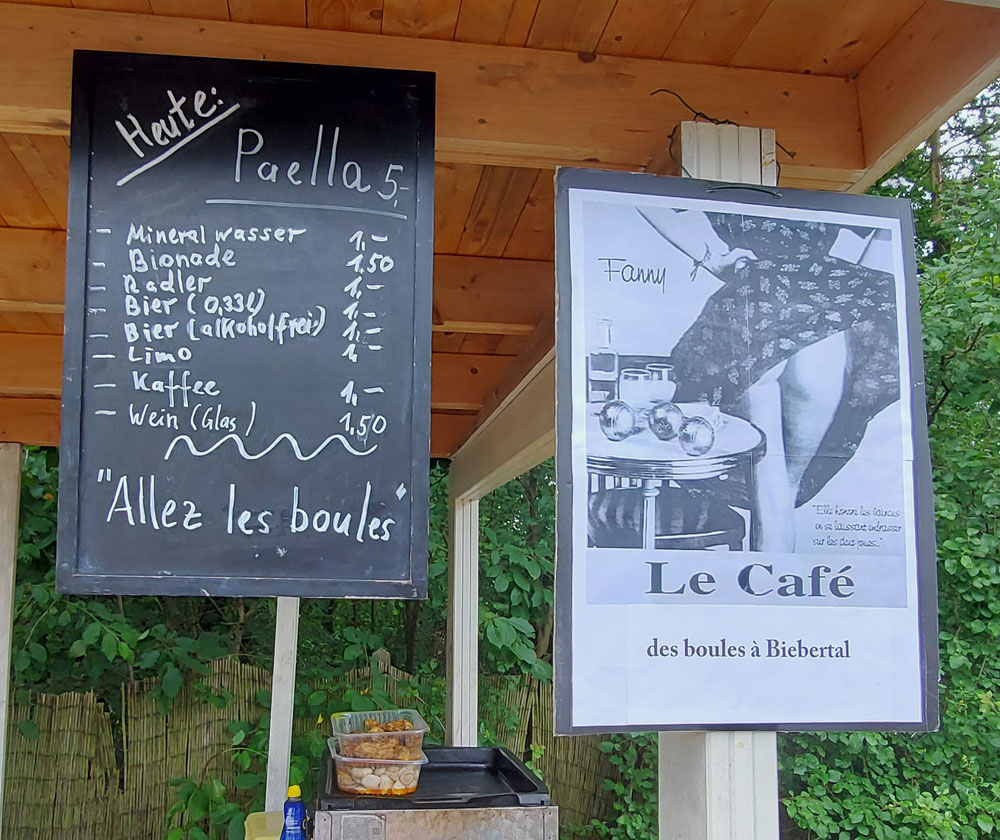 Heute:
Paella 5,-
- Mineralwasser 1,-
- Bionade 1,50
- Radler 1,-
- Bier (0,33l) 1,-
- Bier (alkoholfrei) 1,-
- Limo 1,-
- Kaffee 1,-
- Wein (Glas) 1,50
"Allez les boules"
Fanny
"Elle honore les vaincus
en se laissant embrasser
sur les deux joues..."
Le Café
des boules à Biebertal